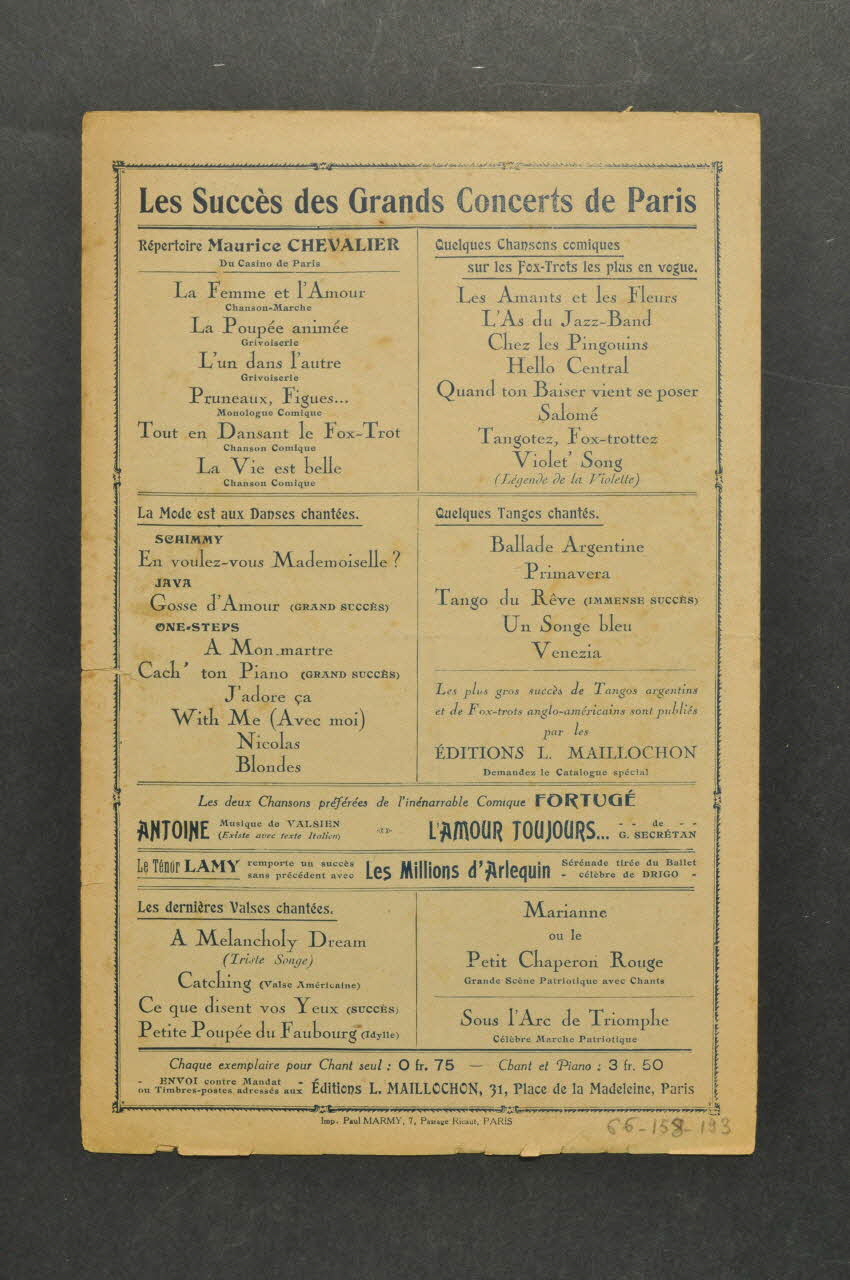 Les Succès des Grands Concerts de Paris
Répertoire Maurice CHEVALIER
Du Casino de Paris
La Femme et l'Amour
Chanson-Marche
La Poupée animée
Grivoiserie
L'un dans l'autre
Grivoiserie
Pruneaux, Figues...
Monologue Comique
Tout en Dansant le Fox-Trot
Chanson Comique
La Vie est belle
Chanson Comique
Quelques Chansons comiques
sur les Fox-Trots les plus en vogue.
Les Amants et les Fleurs
L'As du Jazz-Band
Chez les Pingouins
Hello Central
Quand ton Baiser vient se poser
Salomé
Tangotez, Fox-trottez
Violet' Song
(Légende de la Violette)
La Mode est aux Danses chantées.
SCHIMMY
En voulez-vous Mademoiselle ?
JAVA
Gosse d'Amour (GRAND SUCCÈS)
ONE-STEPS
A Mon.martre
Cach' ton Piano (GRAND SUCCÈS)
J'adore ça
With Me (Avec moi)
Nicolas
Blondes
Quelques Tangos chantés.
Ballade Argentine
Primavera
Tango du Rêve (IMMENSE SUCCÈS)
Un Songe bleu
Venezia
Les plus gros succès de Tangos argentins
et de Fox-trots anglo-américains sont publiés
par les
ÉDITIONS L. MAILLOCHON
Demandez le Catalogue spécial
Les deux Chansons préférées de l'inénarrable Comique FORTUGÉ
ANTOINE Musique de VALSIEN
(Existe avec texte Italien)
L'AMOUR TOUJOURS... - - de - -
G. SECRÉTAN
Le Ténor LAMY remporte un succès
sans précédent avec
Les Millions d'Arlequin Sérénade tirée du Ballet
- célèbre de DRIGO -
Les dernières Valses chantées.
A Melancholy Dream
(Triste Songe)
Catching (Valse Américaine)
Ce que disent vos Yeux (SUCCÈS)
Petite Poupée du Faubourg (Idylle)
Marianne
ou le
Petit Chaperon Rouge
Grande Scène Patriotique avec Chants
Sous l'Arc de Triomphe
Célèbre Marche Patriotique
Chaque exemplaire pour Chant seul : 0 fr. 75 — Chant et Piano : 3 fr. 50
- ENVOI contre Mandat -
ou Timbres-postes adressés aux Éditions L. MAILLOCHON, 31, Place de la Madeleine, Paris
Imp. Paul MARMY, 7, Passage Ricaut, PARIS
66-158-193